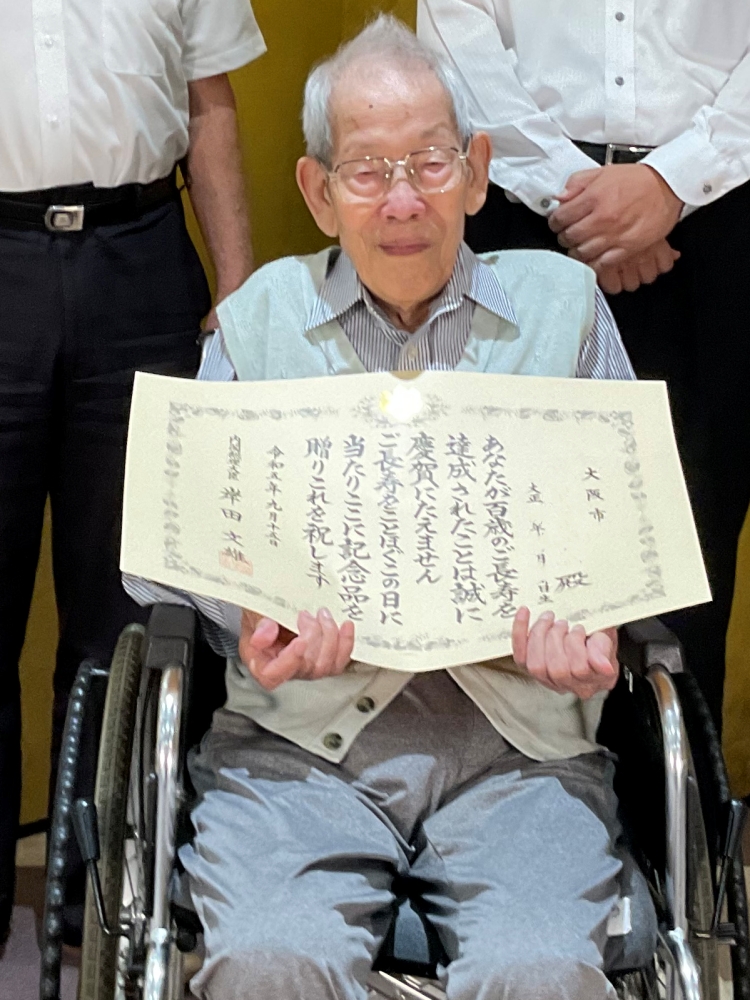 大阪市
殿
大正 年 月 日生
あなたが百歳のご長寿を
達成されたことは誠に
慶賀にたえません
ご長寿をことほぐこの日に
当たりここに記念品を
贈りこれを祝します
令和五年九月十五日
内閣総理大臣 岸田文雄